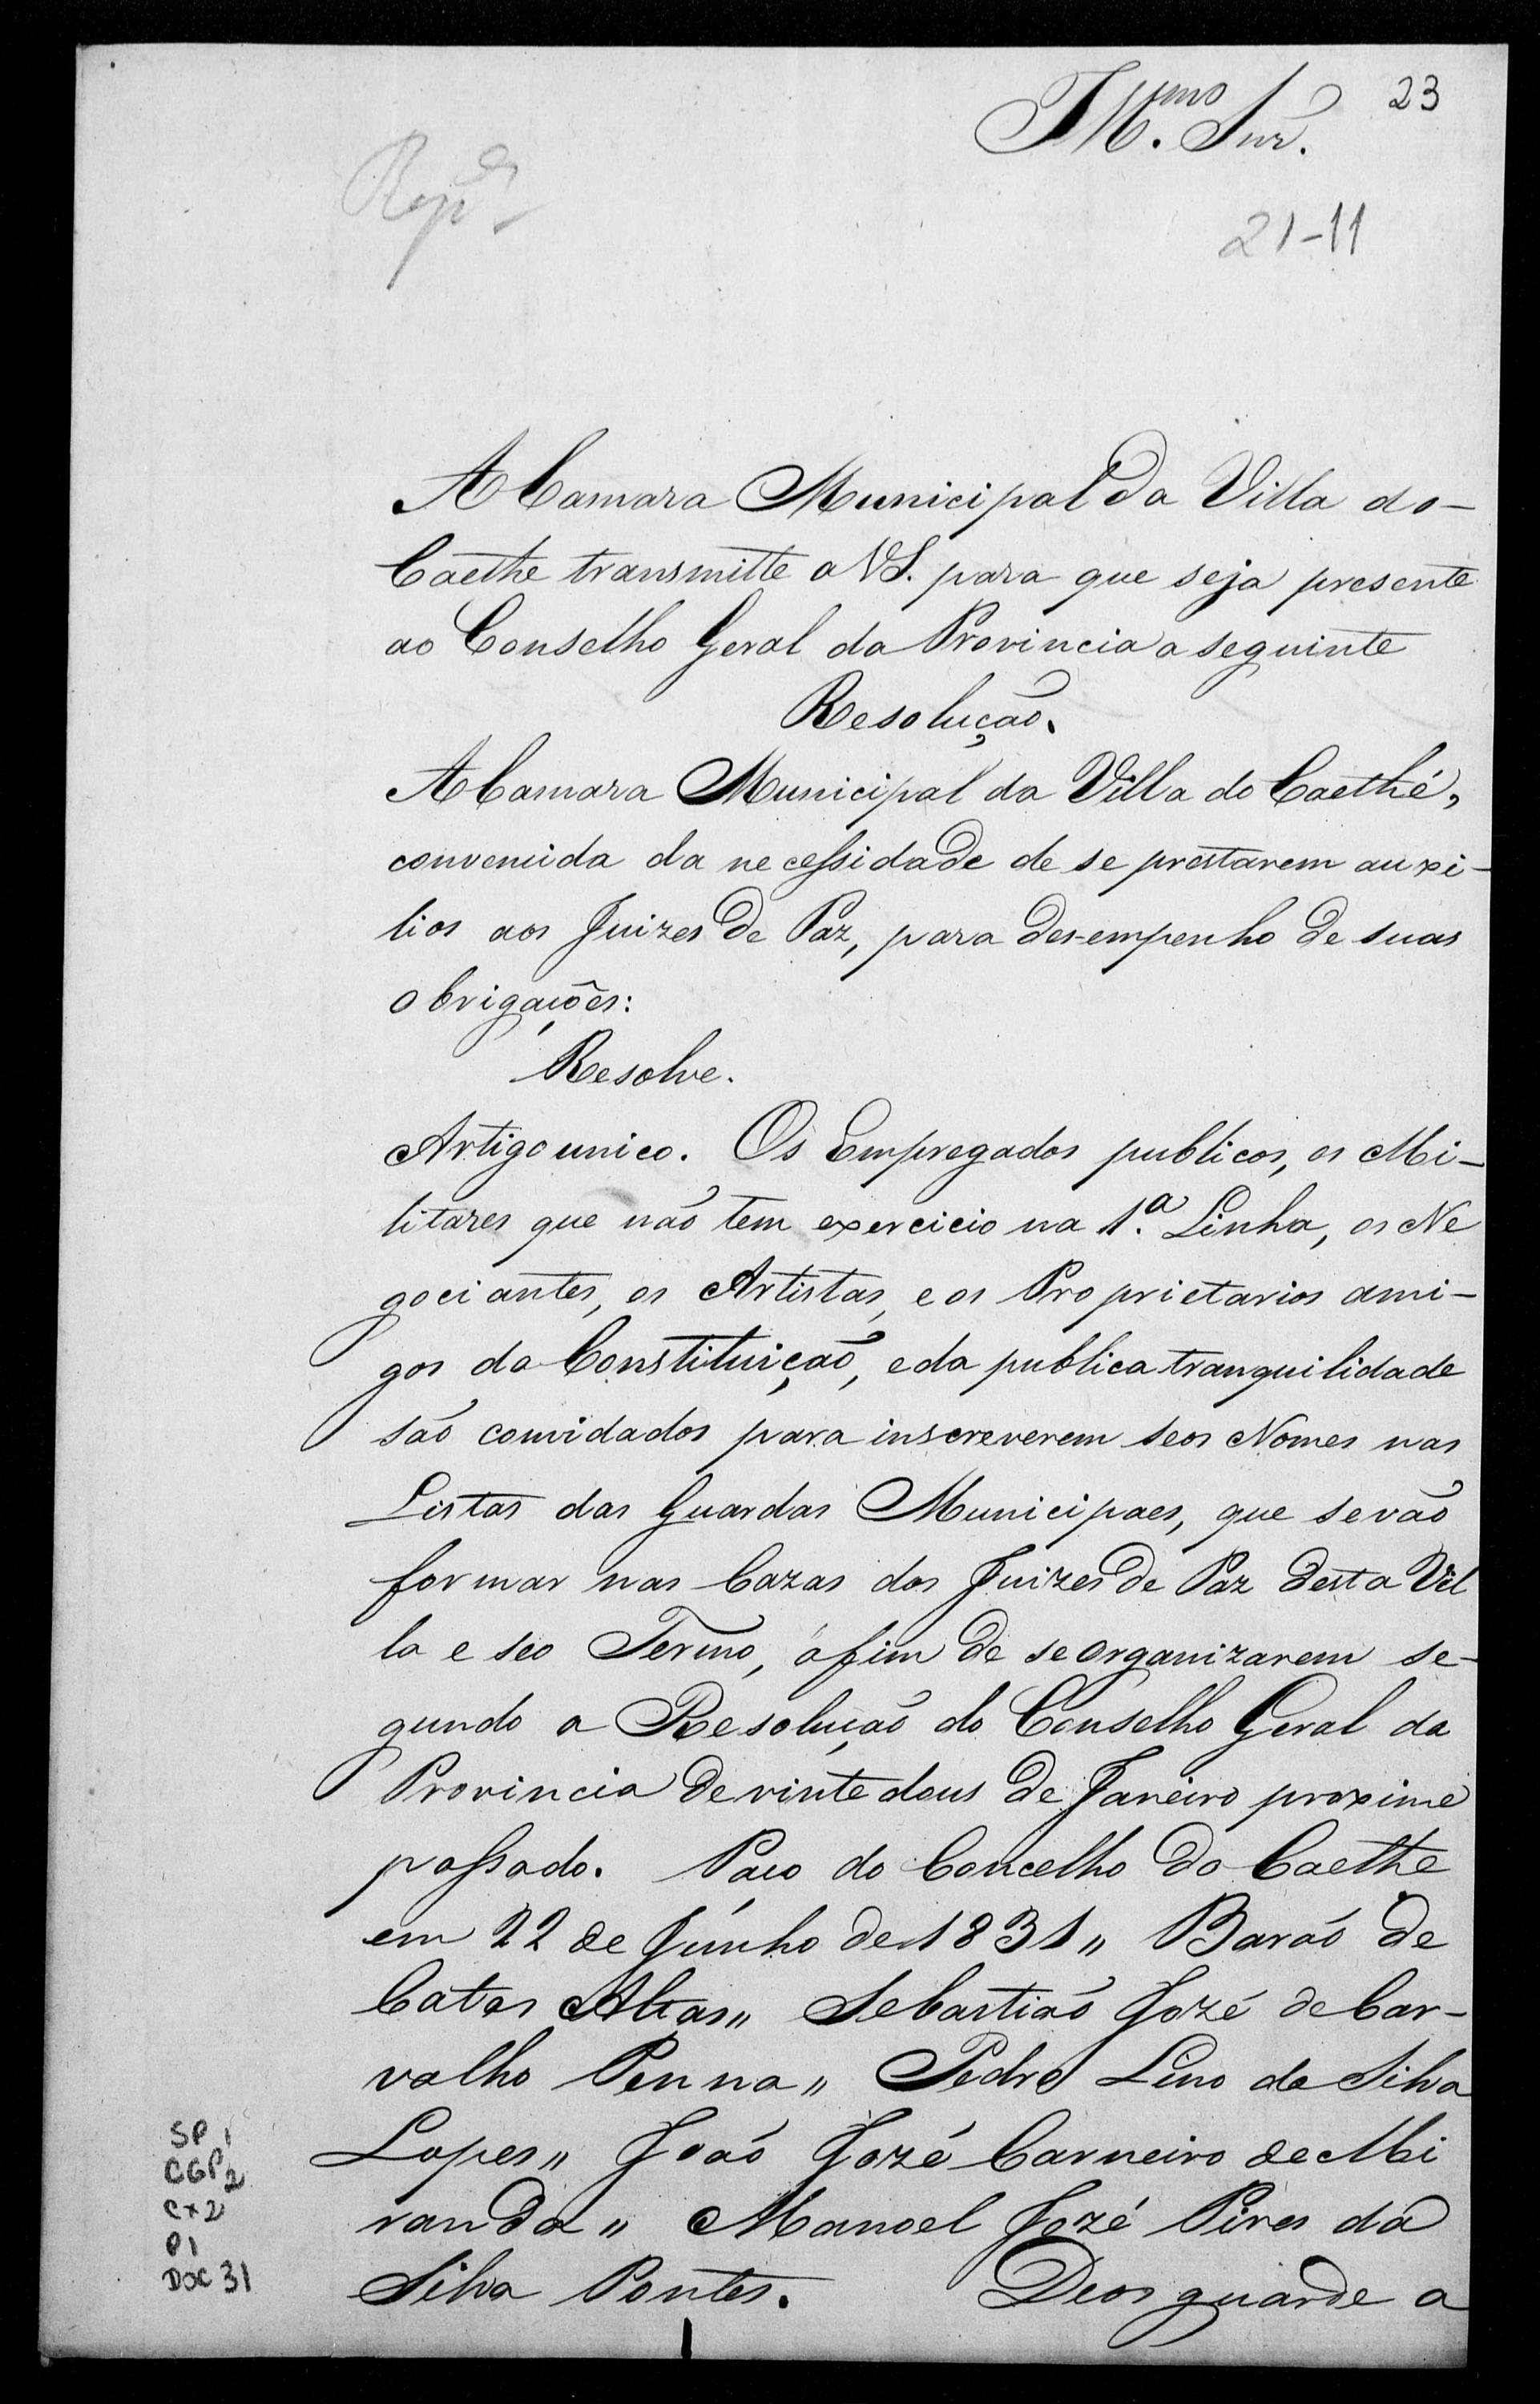 23
Ill.mo Snr.
21-11
A Camara Municipal da Villa do-
Caethe transmitte a VS. para que seja presente
ao Conselho Geral da Provincia a seguinte
Resolução.
A Camara Municipal da Villa do Caethé,
convencida da necessidade de se prestarem auxi-
lios aos Juizes de Paz, para desempenho de suas
obrigações:
Resolve.
Artigo unico. Os Empregados publicos, os Mi-
litares que não tem exercicio na 1.a Linha, os Ne
gociantes, os Artistas, e os Proprietarios ami-
gos da Constituição, e da publica tranquilidade
são convidados para inscreverem seos Nomes nas
Listas das Guardas Municipaes, que se vão
formar nas Cazas dos Juizes de Paz desta Vil
la e seo Termo, afim de se organizarem se-
gundo a Resolução do Conselho Geral da
Provincia de vinte dous de Janeiro proximo
passado. Paço do Concelho do Caethe
em 22 de Junho de 1831 " Barão de
Catas Altas " Sebastião Jozé de Car-
valho Penna " Pedro Lino da Silva
Lopes " João Jozé Carneiro de Mi
randa " Manoel Jozé Pires da
Silva Pontes. Deos guarde a
SP 1
CGP2
Cx 2
P1
DOC 31